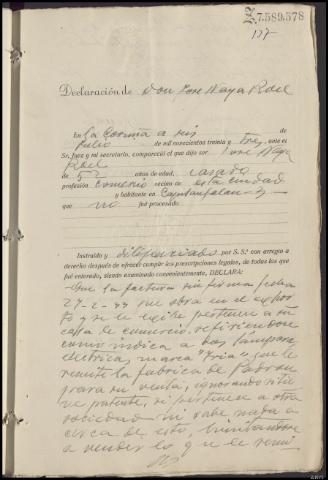 Z.7.589.578
137
Declaración de Don Jose Naya Roel
En La Coruña a seis de
Julio de mil novecientos treinta y tres, ante el
Sr. Juez y mi secretario, compareció el que dijo ser Jose Naya
Roel
de 52 años de edad, casado
profesión comercio vecino de esta ciudad
y habitante en Capitan Galan
que no fué procesado.
Instruído y diligenciado por S. S.ª con arreglo a
derecho después de ofrecer cumplir las prescripciones legales, de todas las que
fué enterado, siendo examinado convenientemente, DECLARA:
Que la factura sin firma fecha
27-2-33 que obra en el exhor
to y se le exibe pertenece a su
casa de comercio, refiriendose
como indica a dos lamparas
electricas, marca "Iria" que le
remite la fabrica de Padron
para su venta, ignorando si tie
ne patente, si pertenece a otra
sociedad ni sabe nada a
cerca de esto, limitandose
a vender lo que le remi